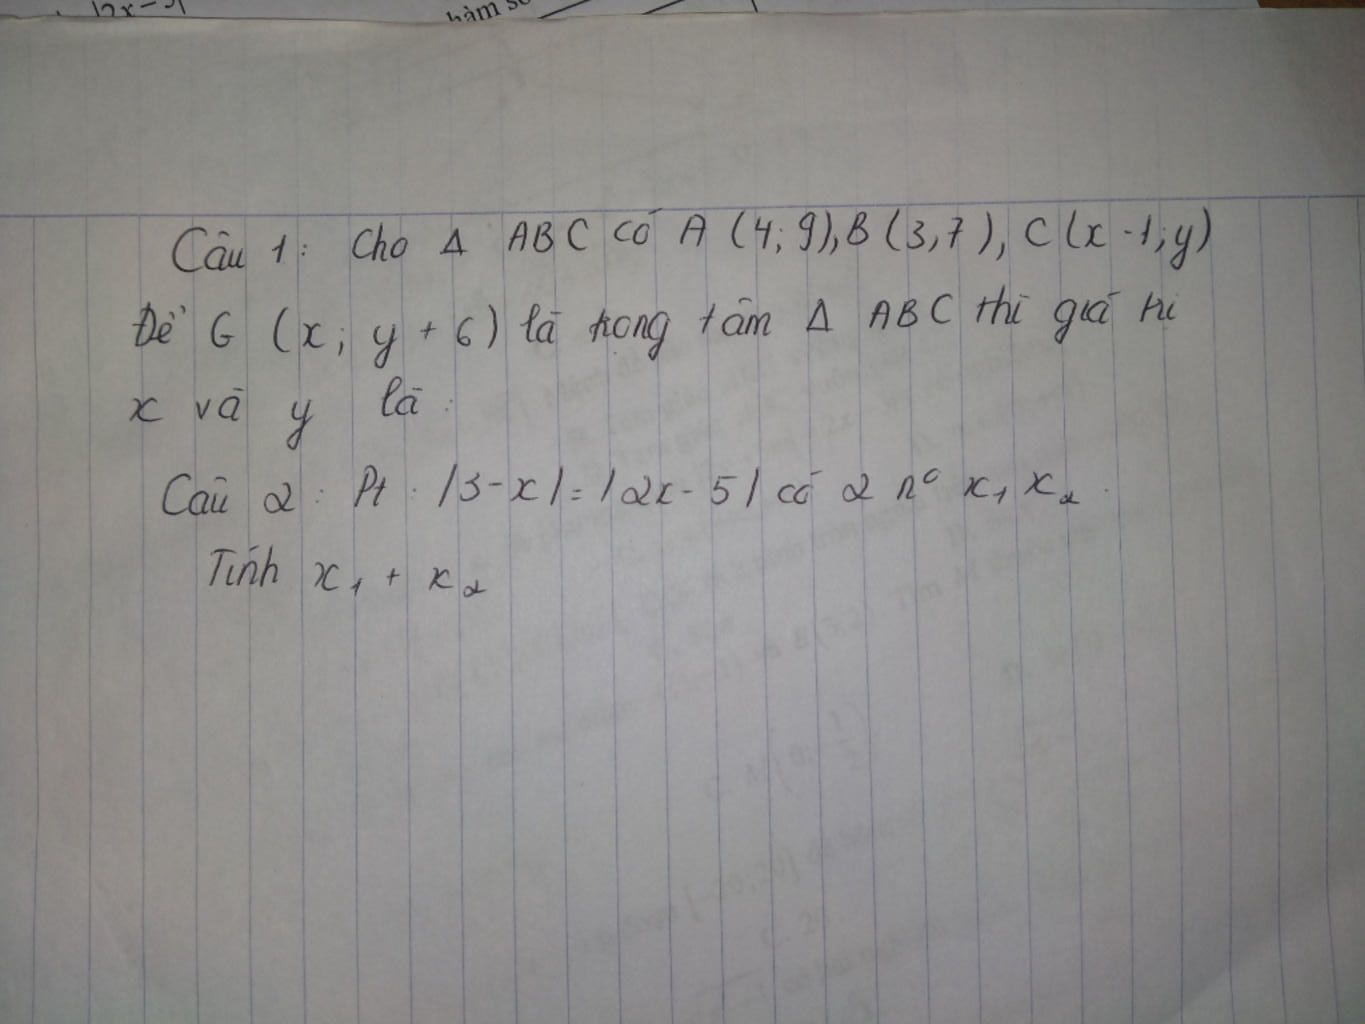 |2x-5|
hàm số
Câu 1: Cho Δ ABC có A (4; 9), B (3,7), C (x-1; y)
Để G (x; y + 6) là trong tâm Δ ABC thì giá tri
x và y là:
Câu 2: Pt: |3-x| = |2x-5| có 2 n° x₁ x₂.
Tính x₁ + x₂